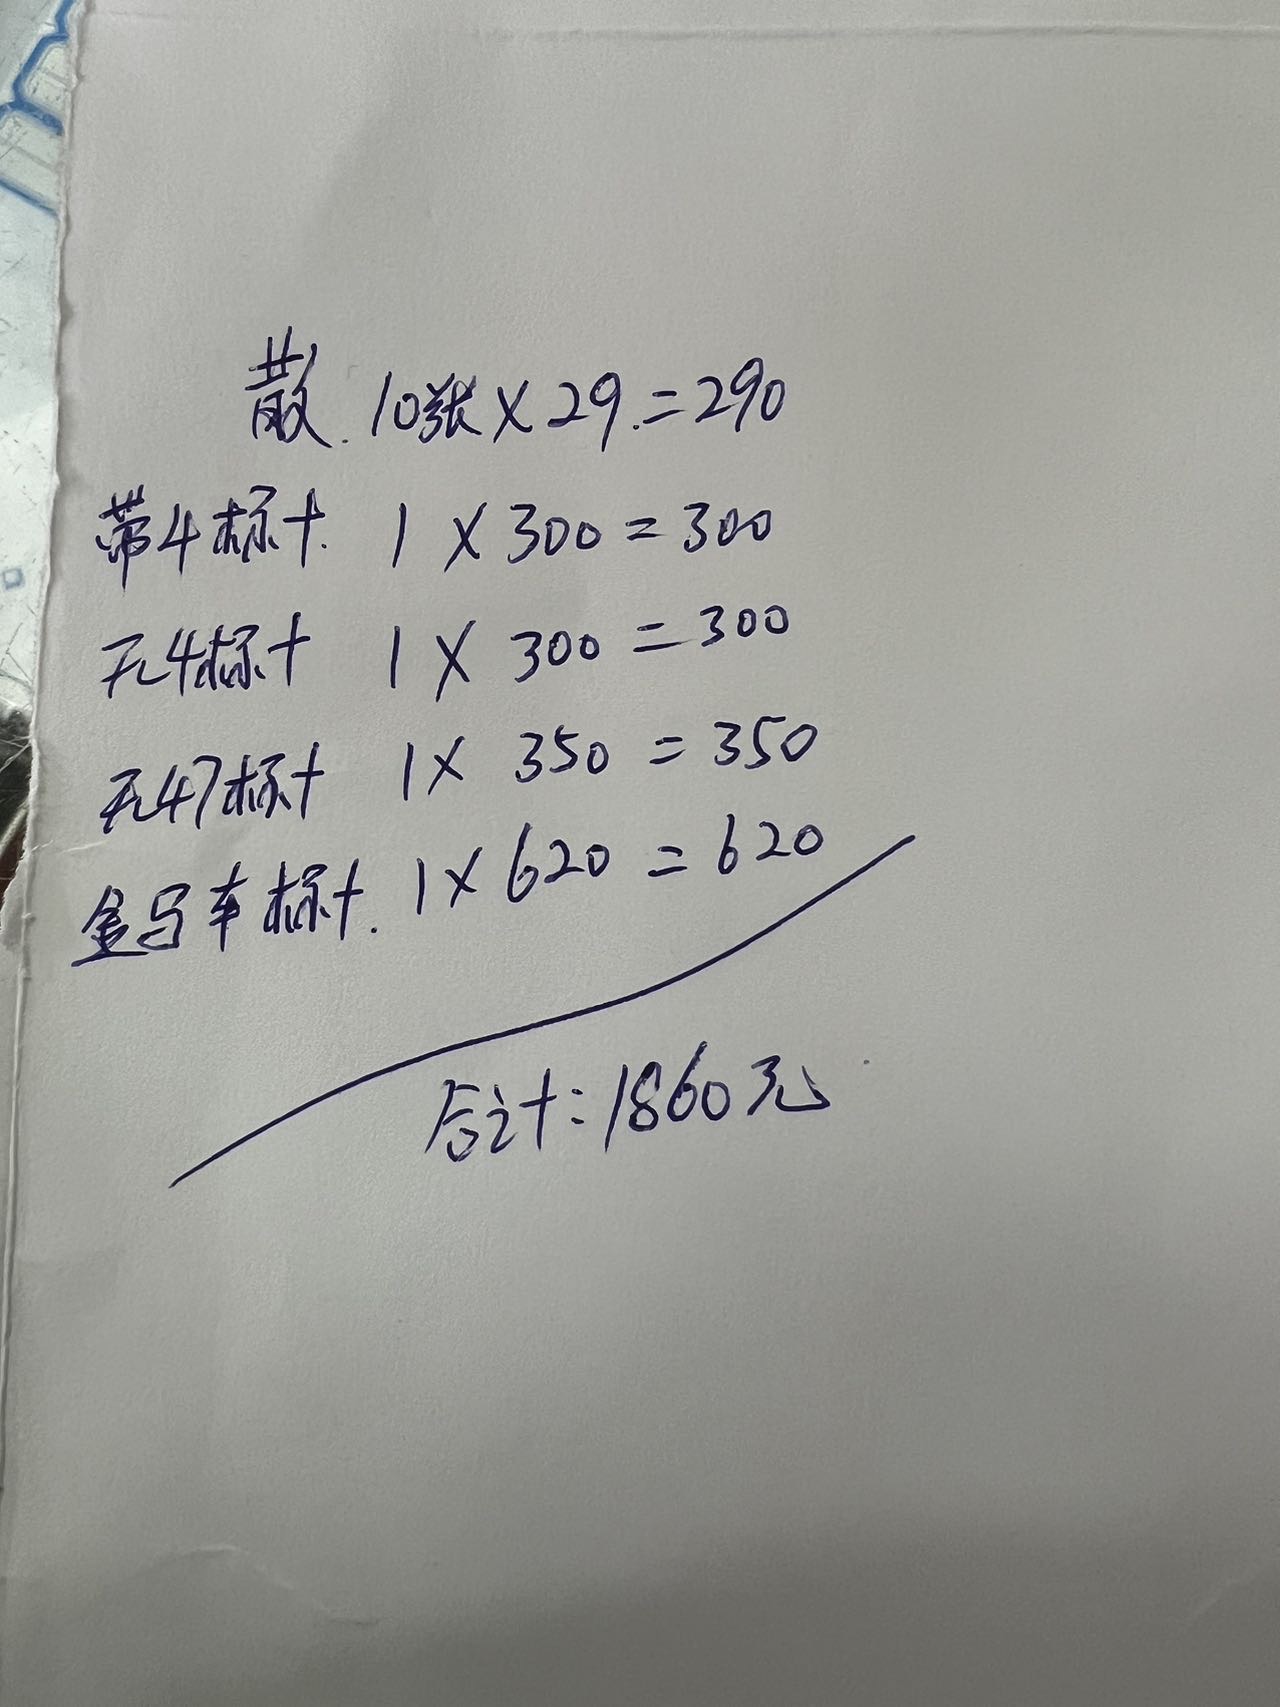 散. 10张×29.=290
带4标十. 1×300=300
无4标十 1×300=300
无47标十 1×350=350
金马车标十. 1×620=620
合计:1860元